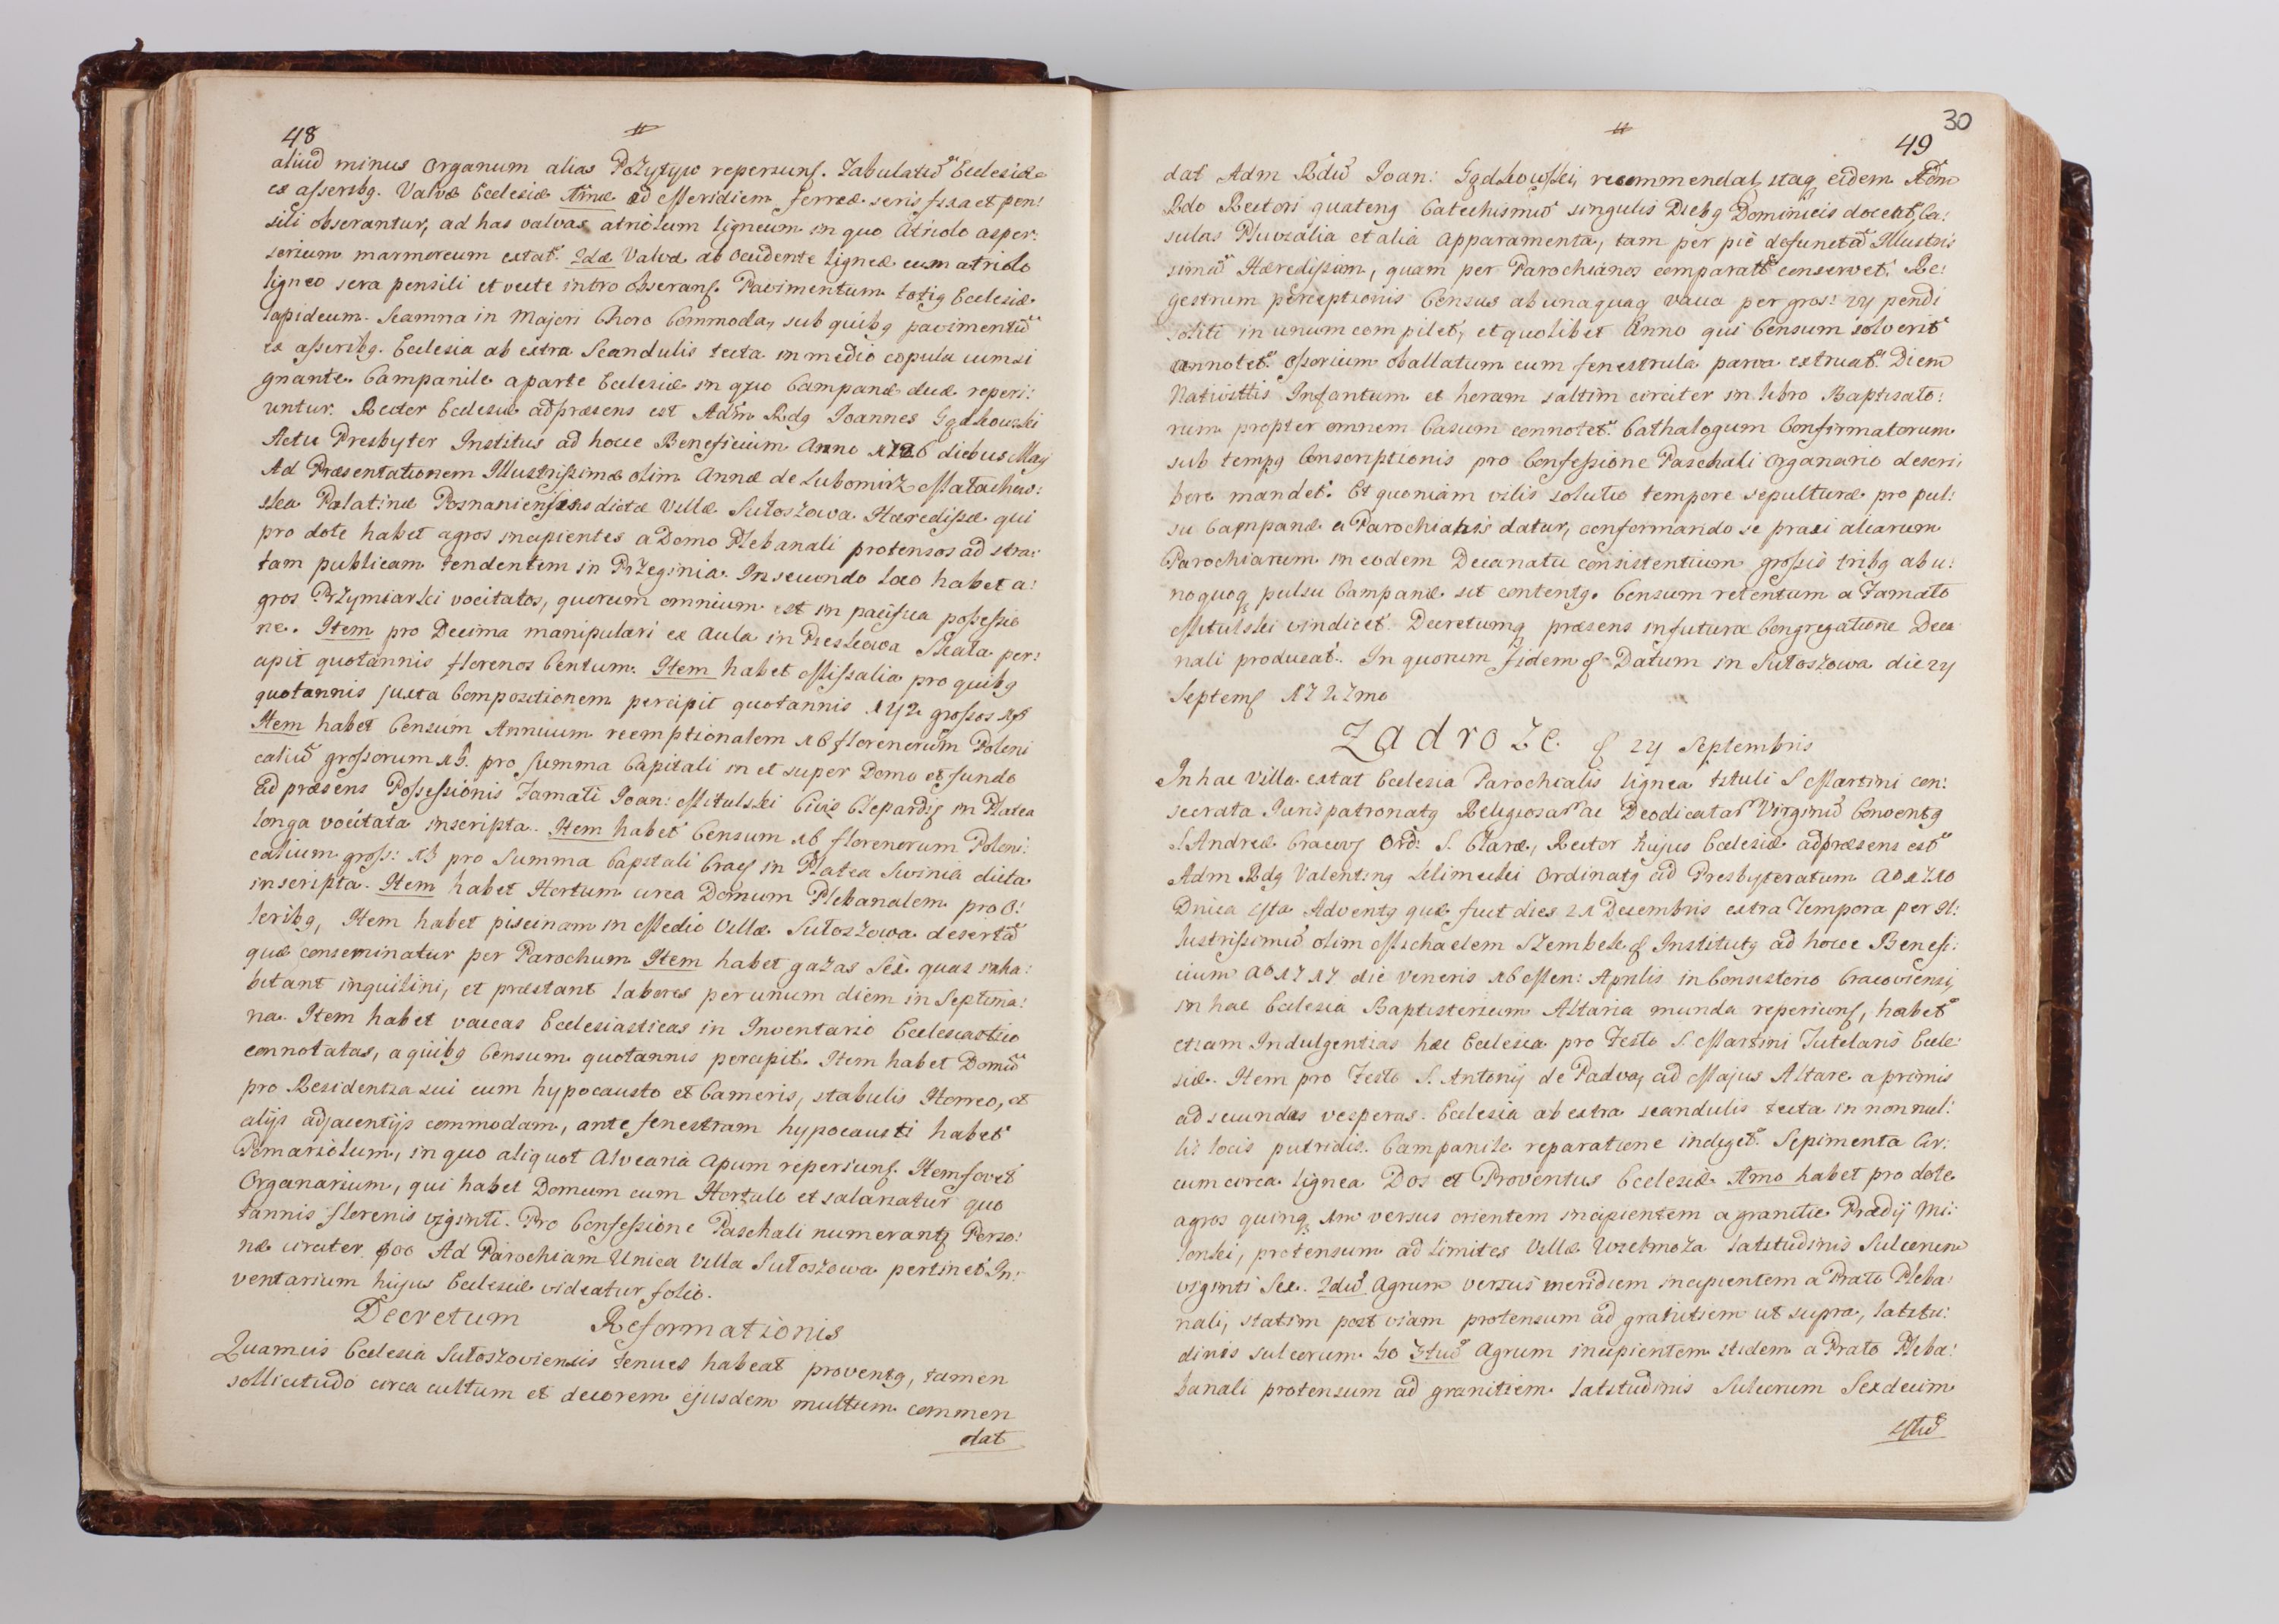 48
aliud minus Organum alias Pozytyw reperiunt. Tabulatū Ecclesiæ
ex asseribg. Valvæ Ecclesiæ 1mæ ad Meridiem ferreæ seris fixa et pen:
sili obserantur, ad has valvas atriolum ligneum in quo Atriolo asper:
sorium marmoreum extat. 2dæ Valvæ ab Occidente ligneæ cum atriolo
ligneo sera pensili et vecte intro obserant. Pavimentum totig Ecclesiæ
lapideum. Scamna in Majori Choro Commoda, sub quibg pavimentū
ex asseribg. Ecclesia ab extra Scandulis tecta in medio copula cum si
gnante. Campanile a parte Ecclesiæ in quo Campanæ duæ reperi:
untur. Rector Ecclesiæ adpræsens est Adm Rdg Joannes Gądkowski
Actu Presbyter Institus ad hocce Beneficium Anno 1726 diebus Maij
Ad Præsentationem Illustrissimæ olim Annæ de Lubomirz Matachow:
ska Palatinæ Posnaniensis dictæ Villæ Sułoszowa Hæredissæ qui
pro dote habet agros incipientes a Domo Plebanali protensos ad stra:
tam publicam tendentem in Przeginia. In secundo loco habet a:
gros Przymiarki vocitatos, quorum omnium est in pacifica possessio
ne. Item pro Decima manipulari ex Aula in Pieskowa Skała per:
cipit quotannis florenos Centum. Item habet Missalia pro quibg
quotannis juxta Compositionem percipit quotannis 142 grossos 16
Item habet Censum Annuum reemptionalem 16 florenorum Poloni
caliū grossorum 15. pro Summa Capitali in et super Domo et fundo
ad præsens Possessionis Famati Joan: Mitulski Civis Clepardię in Platea
longa vocitata inscripta. Item habet Censum 16 florenorum Poloni:
calium gross: 15 pro Summa Capitali Crac in Platea Swinia dicta
inscripta. Item habet Hortum circa Domum Plebanalem pro O:
leribg, Item habet piscinam in Medio Villæ Sułoszowa desertā
quæ conseminatur per Parochum Item habet gazas Sex quas inha:
bitant inquilini, et præstant labores per unum diem in Septima:
na. Item habet vaccas Ecclesiasticas in Inventario Ecclesiastico
connotatas, a quibg Censum quotannis percipit. Item habet Domū
pro Residentia sui cum hypocausto et Cameris, stabulis Horreo, et
alijs adjacentijs commodam, ante fenestram hypocausti habet
Pomariolum, in quo aliquot Alvearia Apum reperiunt. Item fovet
Organarium, qui habet Domum cum Hortulo et salariatur quo
tannis florenis viginti. Pro Confessione Paschali numerantg Perso:
næ circiter 900 Ad Parochiam Unica Villa Sułoszowa pertinet. In:
ventarium hujus Ecclesiæ videatur folio.
Decretum Reformationis
Quamvis Ecclesia Sułoszoviensis tenues habeat proventg, tamen
sollicitudo circa cultum et decorem ejusdem multum commen
dat
30
49
dat Adm Rdū Joan: Gądkowski, recommendat, itaq eidem Adm
Rdo Rectori quateng Catechismū singulis Diebg Dominicis doceat, Ca:
sulas Pluvialia et alia apparamenta, tam per piè defunctā Illustris
simā Hæredissam, quam per Parochianos comparata conservet, Re:
gestrum perceptionis Census ab unaquaq vacca per gros: 24 pendi
soliti in unum compilet, et quolibet Anno qui Censum solverit
annotet. Ossorium oballatum cum fenestrula parva extruat. Diem
Nativittis Infantum et horam saltim circiter in libro Baptisato:
rum propter omnem Casum connotet. Cathalogum Confirmatorum
sub tempg Conscriptionis pro Confessione Paschali Organario descri:
bere mandet. Et quoniam vilis solutio tempore sepulturæ pro pul:
su Campanæ a Parochianis datur, conformando se praxi aliarum
Parochiarum in eodem Decanatu consistentium grossis tribg ab u:
noquoq pulsu Campanæ sit contentg. Censum retentum a Famato
Mitulski vindicet. Decretumq præsens in futura Congregatione Deca
nali producat. In quorum fidem & Datum in Sułoszowa die 24
Septemb 1727mo
Zadroże. & 24 Septembris
In hac Villa extat Ecclesia Parochialis lignea tituli S Martini con:
secrata Jurispatronatg Religiosar ac Deodicatar Virginū Conventg
S. Andreæ Cracov Ord: S. Claræ, Rector hujus Ecclesiæ adpræsens est
Adm Rdg Valenting Klimecki Ordinatg ad Presbyteratum Ao 1710
Dnica 4ta Adventg quæ fuit dies 21 Decembris extra Tempora per Il:
lustrissimū olim Michaelem Szembek & Institutg ad hocce Benefi:
cium Ao 1717 die Veneris 16 Men: Aprilis in Consistorio Cracoviensi
in hac Ecclesia Baptisterium Altaria munda reperiunt, habet
etiam Indulgentias hæc Ecclesia pro Festo S. Martini Tutelaris Eccle:
siæ. Item pro Festo S. Antonij de Padva, ad Majus Altare a primis
ad secundas vesperas. Ecclesia ab extra scandulis tecta in nonnul:
lis locis putridis. Campanile reparatione indiget. Sepimenta Cir:
cumcirca lignea Dos et Proventus Ecclesiæ 1mo habet pro dote
agros quinq 1m versus orientem incipientem a granitie Prædij Mi:
lonki, protensum ad limites Villæ Wielmoza latitudinis Sulcorum
viginti Sex. 2dū Agrum versus meridiem incipientem a Prato Pleba:
nali, statim post viam protensum ad granitiem ut supra, latitu:
dinis sulcorum 50 3tiū Agrum incipientem itidem a Prato Pleba:
banali protensum ad granitiem latitudinis Sulcorum Sexdecim
4tū